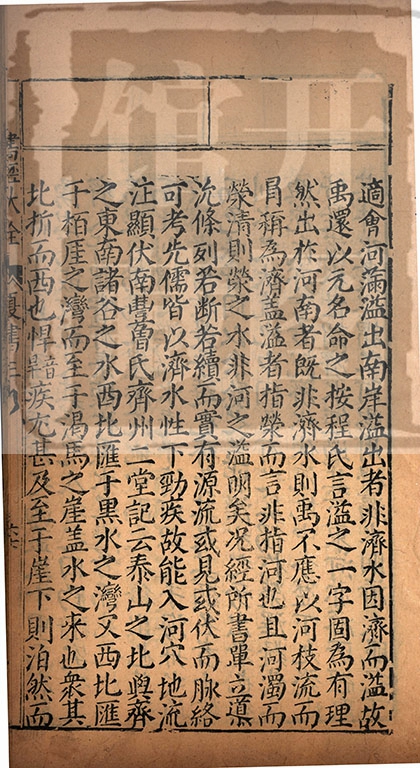 適會河滿溢出南岸溢出者非濟水因濟而溢故
禹還以元名命之按程氏言溢之一字固為有理
然出於河南者既非濟水則禹不應以河枝流而
冐稱為濟盖溢者指滎而言非指河也且河濁而
滎清則滎之水非河之溢明矣况經所書單立導
沇條列若断若續而實有源流或見或伏而脉絡
可考先儒皆以濟水性下勁疾故能入河穴地流
注顯伏南豐曾氏齊州二堂記云泰山之北與齊
之東南諸谷之水西北匯于黒水之灣又西北匯
于栢厓之灣而至于渴馬之崖盖水之来也衆其
北折而西也悍疾尤甚及至于崖下則泊然而
書經大全
夏書三